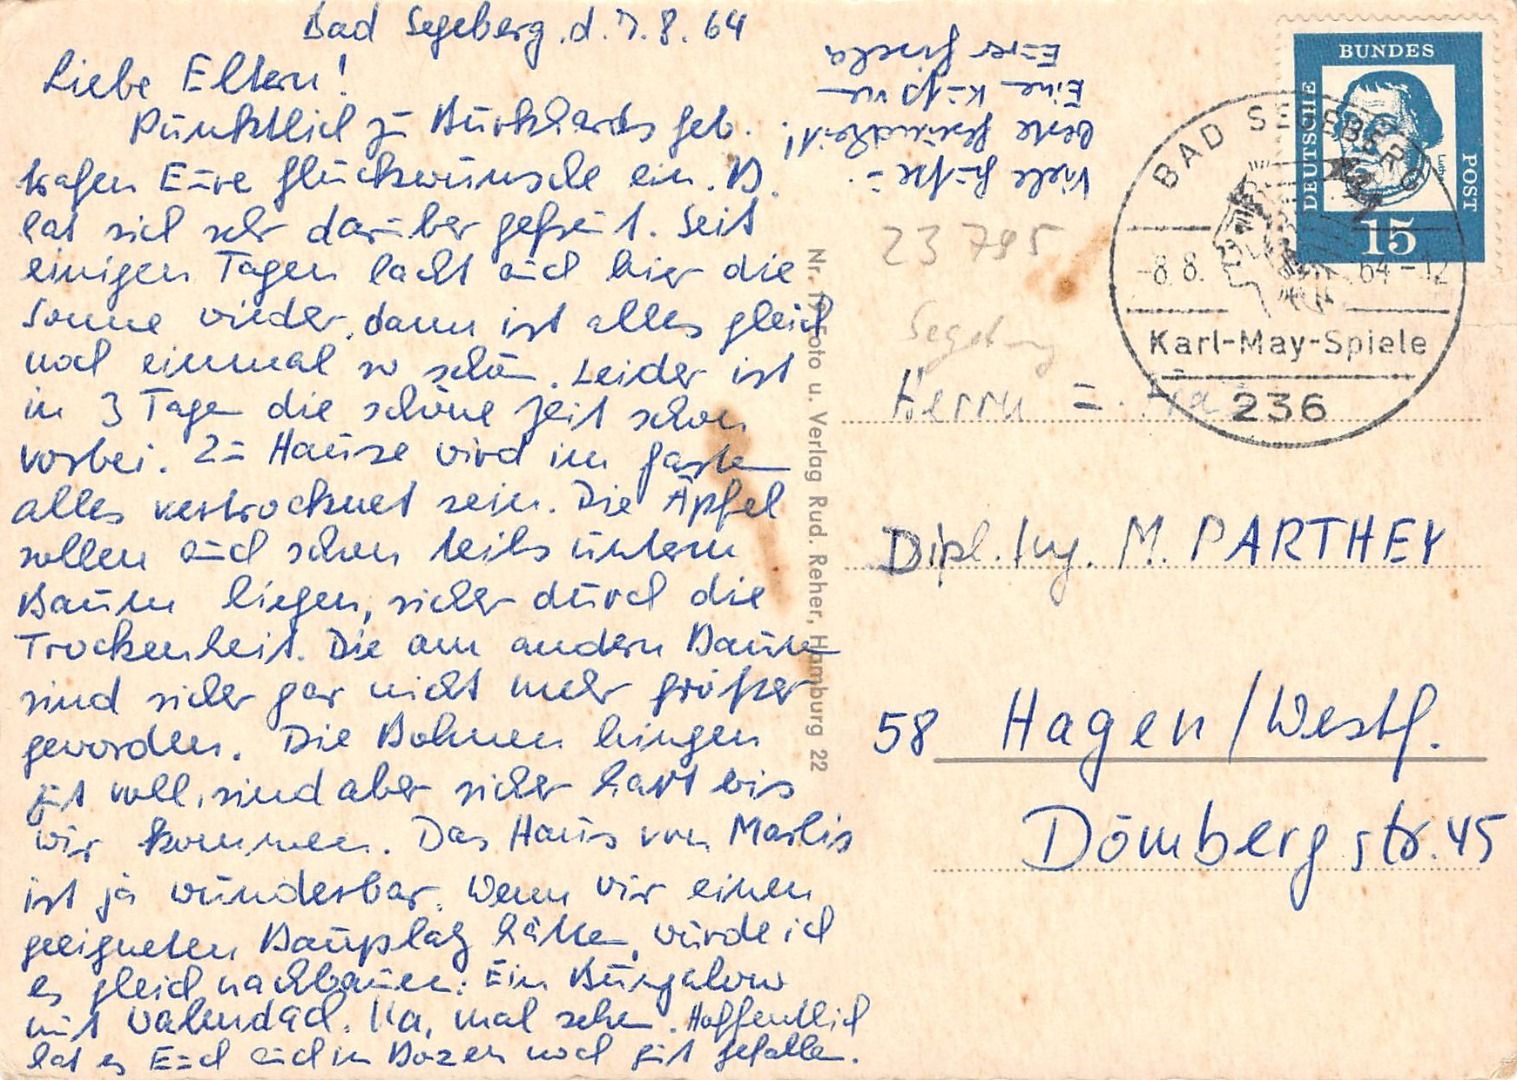 Bad Segeberg, d. 7. 8. 64
Liebe Eltern!
Pünktlich zu Burkhards Geb.
trafen Eure Glückwünsche ein. B.
hat sich sehr darüber gefreut. Seit
einigen Tagen lacht auch hier die
Sonne wieder, dann ist alles gleich
noch einmal so schön. Leider ist
in 3 Tagen die schöne Zeit schon
vorbei. Zu Hause wird im Garten
alles vertrocknet sein. Die Äpfel
sollen auch schon teils unterm
Baum liegen, sicher durch die
Trockenheit. Die am andern Baum
sind sicher gar nicht mehr größer
geworden. Die Bohnen hingen
gut voll, sind aber sicher hart bis
wir kommen. Das Haus von Marlis
ist ja wunderbar. Wenn wir einen
geeigneten Bauplatz hätten, würde ich
es gleich nachbauen. Ein Bungalow
mit Walmdach. Na, mal sehen. Hoffentlich
hat es Euch auch in Bozen noch gut gefallen.
Viele Grüße u.
beste Gesundheit!
Eine Kuß von
Eurer Gisela
Nr. 19 Foto u. Verlag Rud. Reher, Hamburg 22
DEUTSCHE BUNDES POST
15
BAD SEGEBERG
-8.8.64-12
Karl-May-Spiele
236
23795
Segeberg
Herrn u. Frau
Dipl. Ing. M. PARTHEY
58 Hagen/Westf.
Dömbergstr. 45